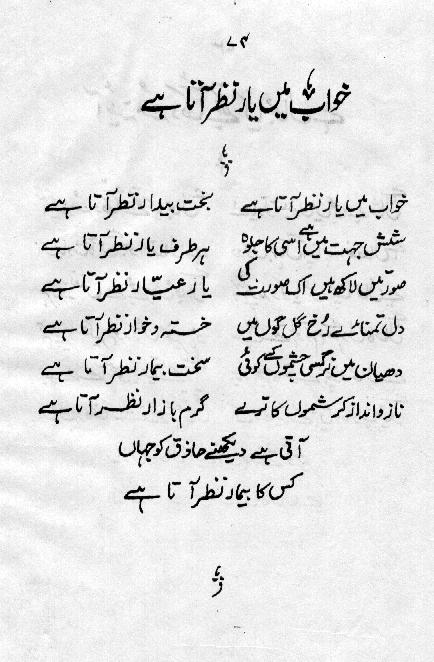 ۷۴
خواب میں یار نظر آتا ہے
خواب میں یار نظر آتا ہے بخت بیدار نظر آتا ہے
شش جہت میں ہے اسی کا جلوہ ہر طرف یار نظر آتا ہے
صورتیں لاکھ ہیں اک صورت کی یار عیّار نظر آتا ہے
دل تمنائے رُخ گل گوں میں خستہ و خوار نظر آتا ہے
دھیان میں نرگسی چشموں کے کوئی سخت بیمار نظر آتا ہے
ناز و انداز کرشموں کا ترے گرم بازار نظر آتا ہے
آتی ہے دیکھنے حاذق کو جہاں
کس کا بیمار نظر آتا ہے